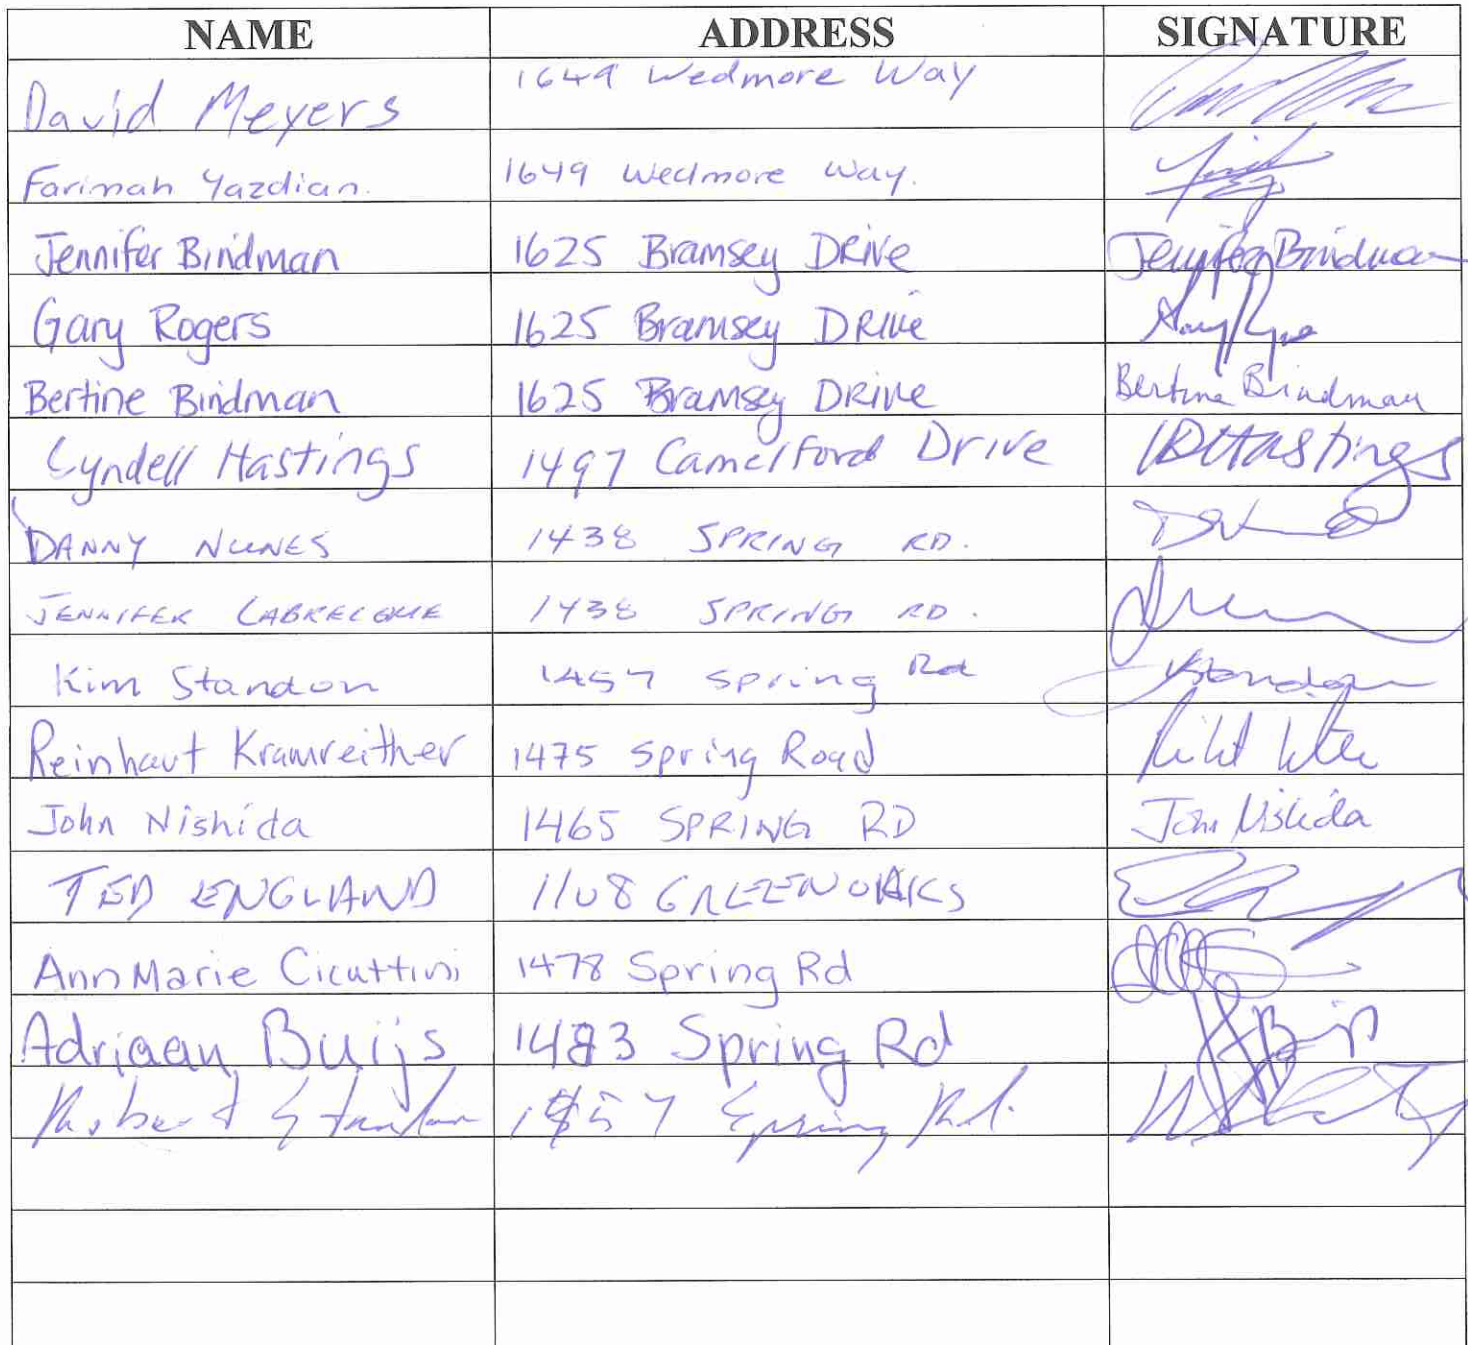 NAME ADDRESS SIGNATURE
David Meyers 1649 Wedmore Way
Farimah Yazdian. 1649 Wedmore Way.
Jennifer Bindman 1625 Bramsey DRive Jennifer Bindman
Gary Rogers 1625 Bramsey DRive
Bertine Bindman 1625 Bramsey DRive Bertine Bindman
Lyndell Hastings 1497 Camelford Drive Hastings
DANNY NUNES 1438 SPRING RD.
JENNIFER LABRECQUE 1438 SPRING RD.
Kim Standon 1457 Spring Rd KStandon
Reinhaut Kramreither 1475 Spring Road
John Nishida 1465 SPRING RD John Nishida
TED ENGLAND 1108 GREENOAKS
AnnMarie Cicuttini 1478 Spring Rd
Adriaan Buijs 1483 Spring Rd ABuijs
Robert Spring Rd.